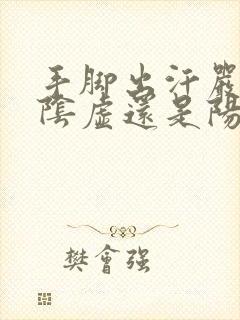 手脚出汗嚴
陰虛還是陽
樊會强